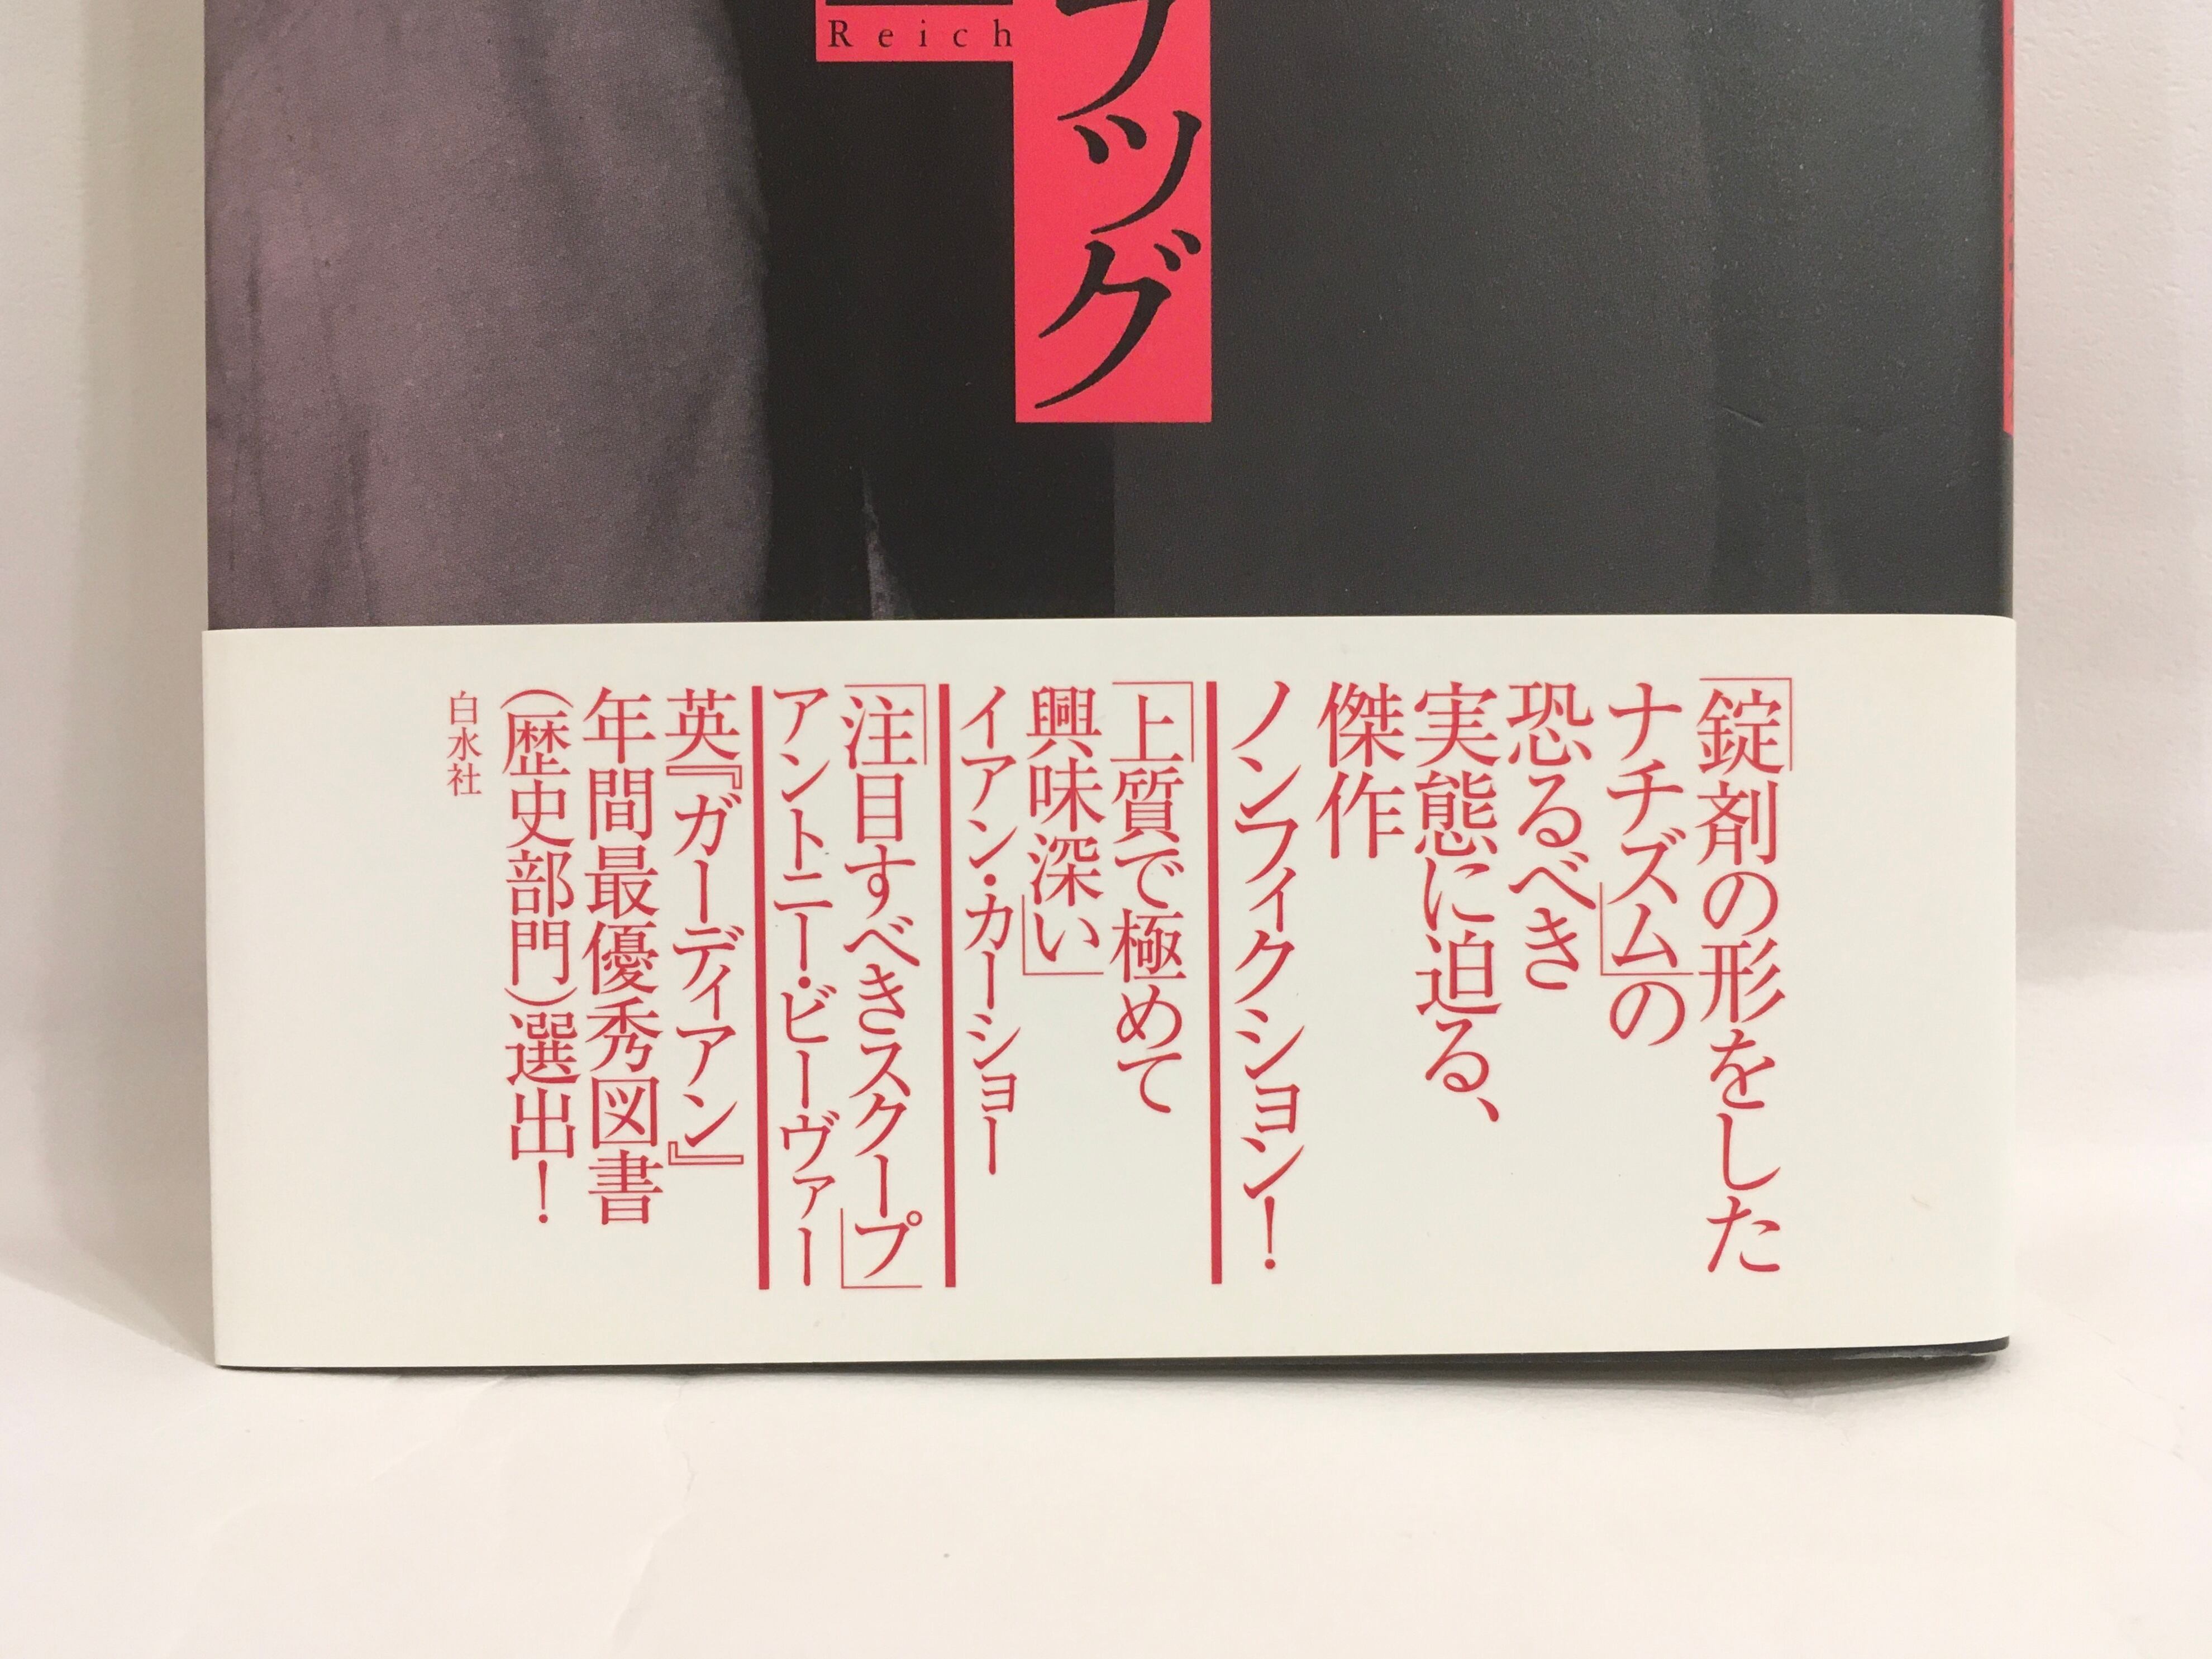 Reich
ッグ
「錠剤の形をした
ナチズム」の
恐るべき
実態に迫る、
傑作
ノンフィクション!
「上質で極めて
興味深い」
イアン・カーショー
「注目すべきスクープ」
アントニー・ビーヴァー
英『ガーディアン』
年間最優秀図書
(歴史部門)選出!
白水社